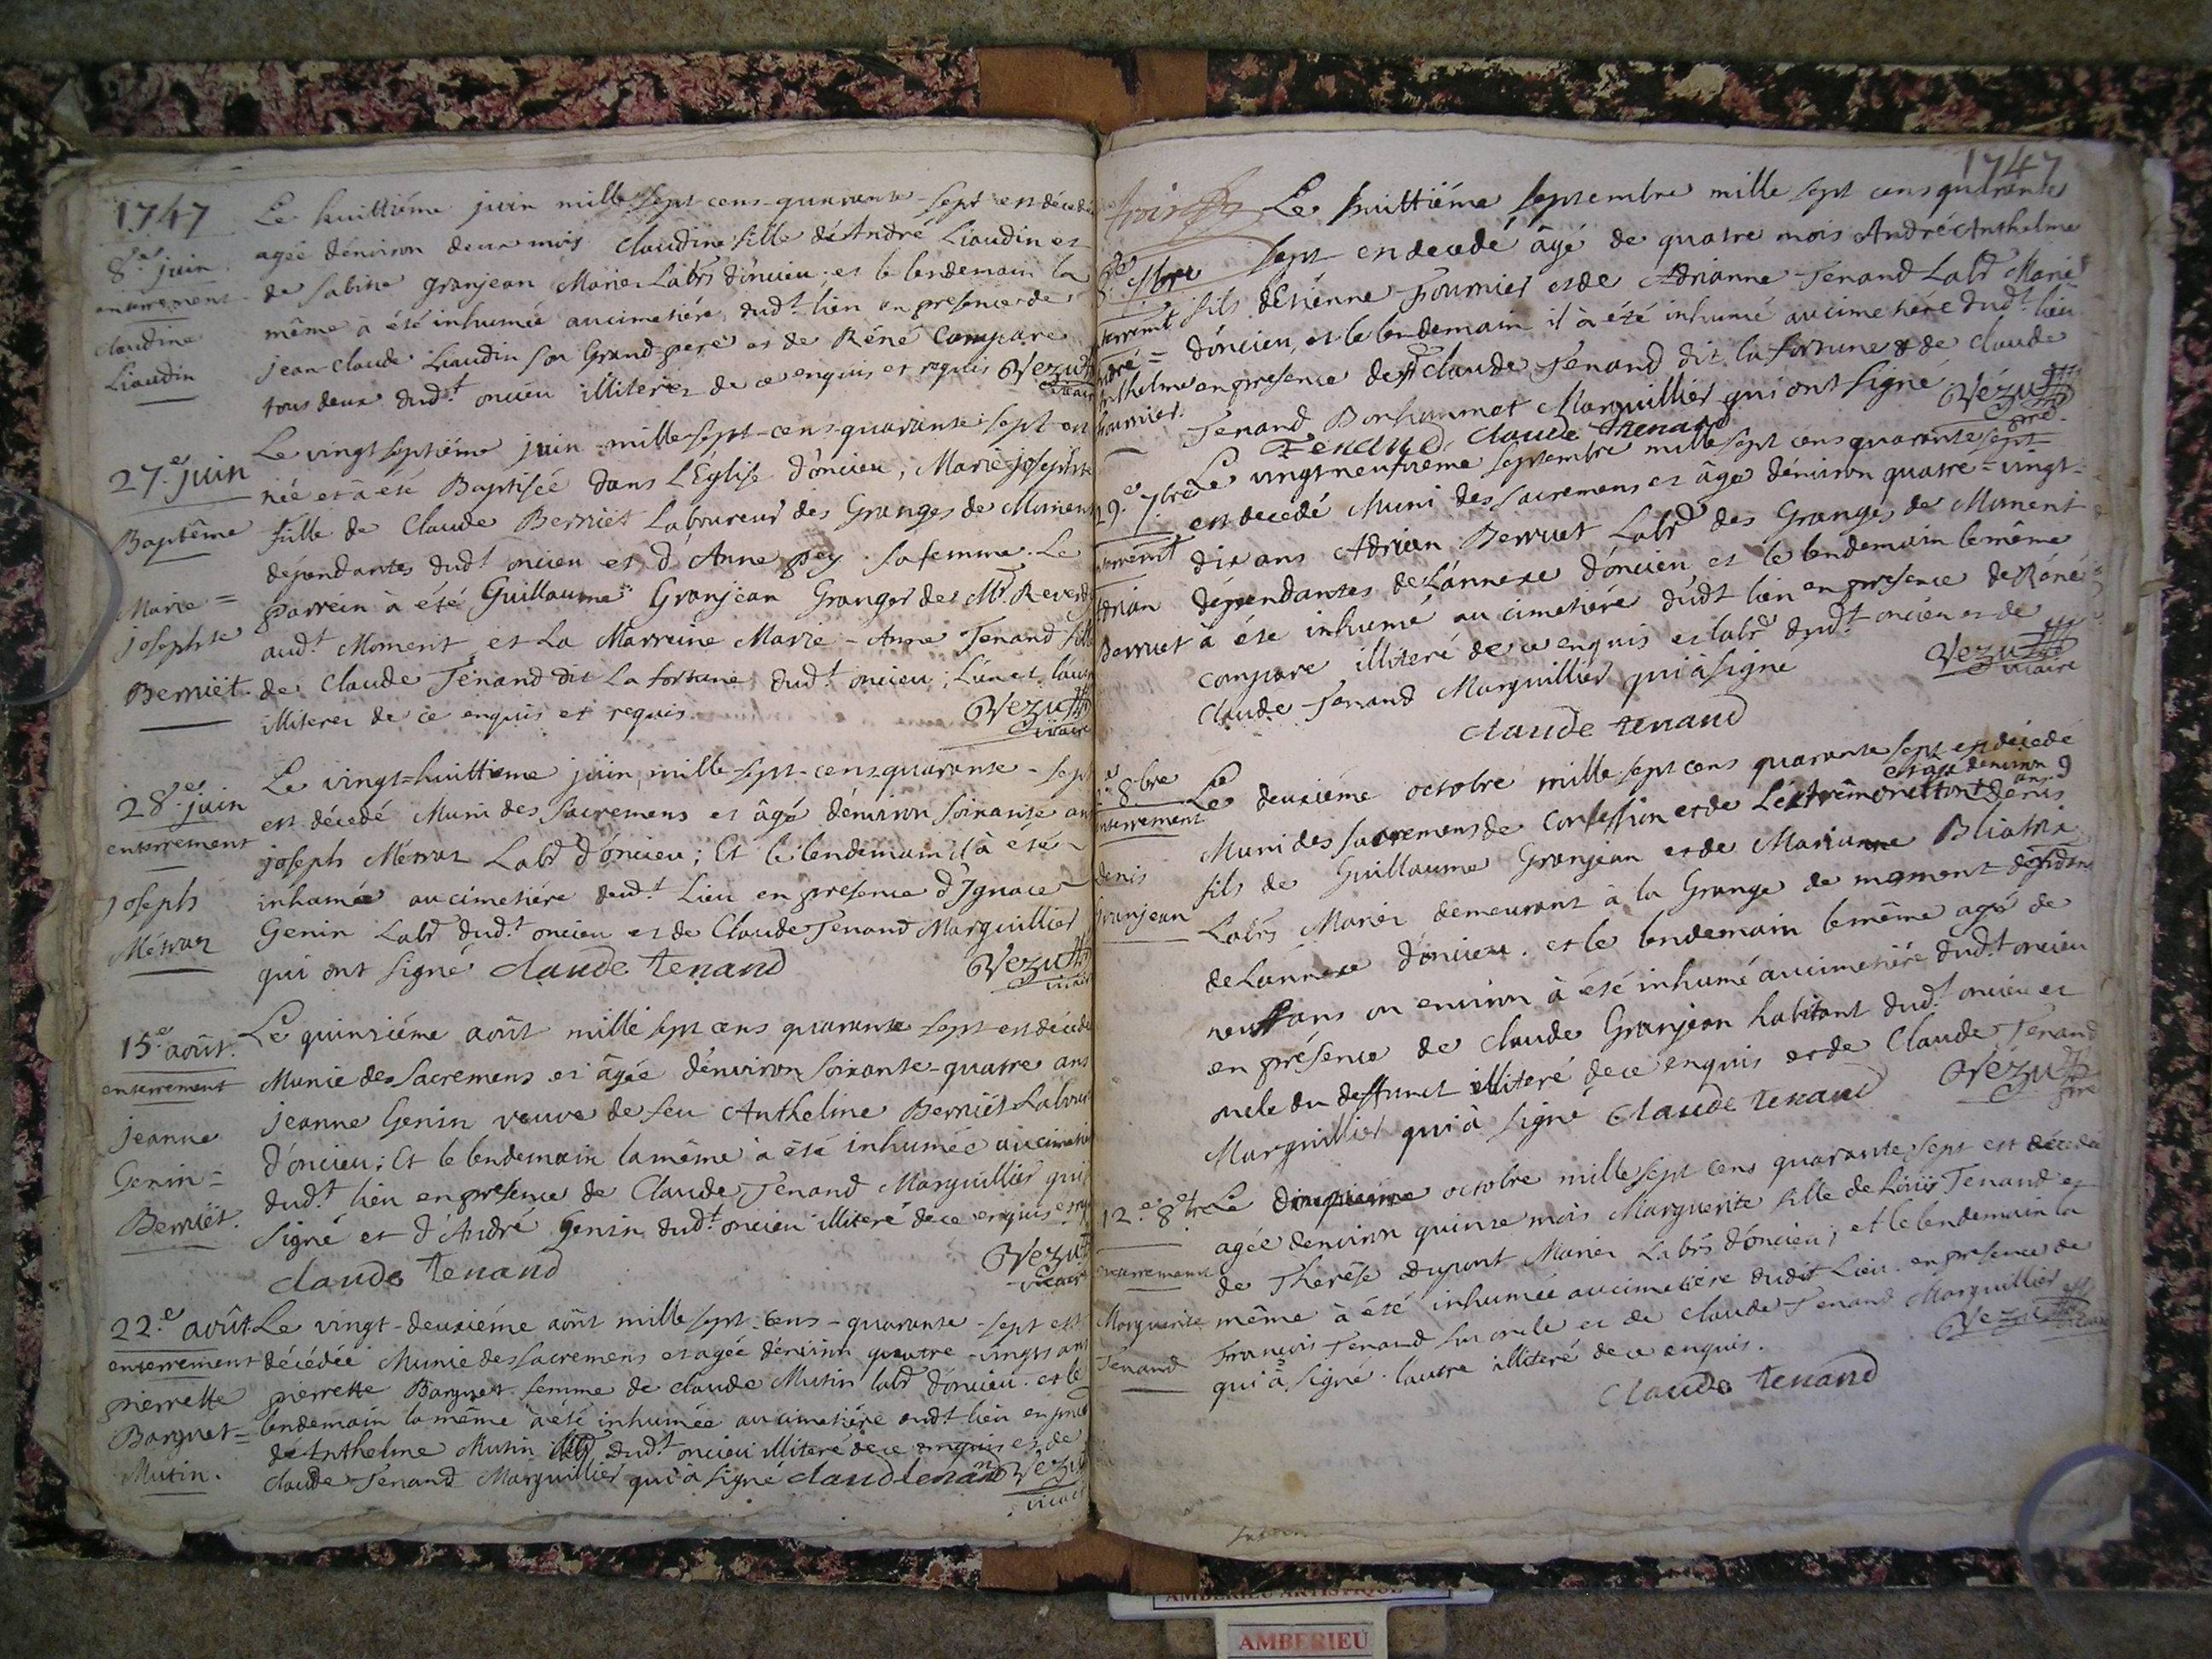 1747
Le huittiéme juin mille sept-cens-quarante-sept est décedée
8.e juin
agée d'énviron deux mois Claudine fille dé André Liaudin et
enterrement
de Sabine Granjean Mariés Labrs d'óncieu; et le lendemain la
Claudine
même à été inhumée au cimetiére dud.t lieu en presence de
Liaudin
jean-Claude Liaudin son Grand-pere et de Réné Compare
tous deux dud.t oncieu illiterez de ce enquis et requis Vezu
vicaire
Le vingt septiéme juin mille-sept-cens-quarante sept est
27.e juin
née et à été Baptisée dans L'Église d'óncieu, Marie josephte
Baptême
fille de Claude Berniét Laboureur des Granges de Moment
dépendantes dud.t oncieu et d'Anne pey sa femme. Le
Marie=
parrein à été Guillaume Granjean Granger des Mr. Reverd
josephte
aud.t Moment et La Marreine Marie-Anne Tenand fille
Berniét.
de Claude Ténand dit La fortune dud.t oncieu; L'un et l'autre
illiterez de ce enquis et requis.
Vezu
vicaire
Le vingt=huittieme juin, mille-sept-cens-quarante-sept
28.e juin
est décedé Muni des Sacremens et âgé d'énviron soixante ans
enterrement
joseph Ménvaz Labr d'óncieu; Et le lendemain il à été
joseph
inhumé au cimetiére dud.t Lieu en presence d'Ignace
Ménvaz
Genin Labr dud.t oncieu et de Claude Tenand Marguillier
qui ont signé claude tenand
Vezu
vicaire
Le quinziéme août mille sept cens quarante sept est décedée
15.e août.
enterrement
Munie des Sacremens et âgée d'énviron soixante-quatre ans
jeanne
jeanne Genin veuve de feu Anthelme Berniét Labour
Genin=
d'óncieu; Et le lendemain la même à été inhumée au cimetiére
Berniét.
dud.t lieu en presence de Claude Tenand Marguillier qui
signé et d'André Genin dud.t oncieu illiteré de ce enquis et requis
claude tenand
Vezu
vicaire
22.e août
Le vingt-deuxiéme août mille sept-cens-quarante-sept est
enterrement
décédée Munie des Sacremens et agée d'énviron quatre-vingts ans
pierrette
pierrette Barguet femme de Claude Mutin labr d'oncieu. et le
Barguet=
lendemain la même à été inhumée au cimetiére dud.t lieu en pre
Mutin.
de Anthelme Mutin dud.t oncieu illiteré de ce enquis et de
Claude Tenand Marguillier qui à signé claud tenand Vezu
vicaire
1747
Le huittiéme septembre mille sept cens quarante
sept est decedé âgé de quatre mois André Anthelme
7bre
fils d'Etiénne Fournier et de Adrianne Tenand Labr Mariés
terremt
d'óncieu, et le lendemain il à été inhumé au cimetiere dud.t lieu
dré=
nthelme
en presence de Claude Tenand dit la fortune & de Claude
fournier.
Tenand Bonhummot Marguillier qui ont signé. Vézu
ptre.
Tenand claude tenand
29.e 7bre
Le vingt neufviéme septembre mille sept cens quarante sept
est decedé Muni des Sacremens et âgé d'énviron quatre=vingt=
terremt
dix ans Adrian Berruet Labr des Granges de Moment
Adrian
dépendantes de L'ánnexe d'óncieu et le lendemain le même
Berruet
à été inhumé au cimetiére dúdt lieu en presence de Réné
compare illiteré de ce enquis et labr dud.t oncieu et de
Claude Tenand Marguillier, qui à signé
Vezu
vicaire
claude tenand
2.e 8bre
Le deuxiéme octobre mille sept cens quarante sept est décedé
et âgé d'environ 9 ans
enterrement
Muni des Sacremens de Confession et de L'éxtrémonction denis
denis
fils de Guillaume Granjean et de Marianne Bliatrix
Granjean
Labrs Mariés demeurant à la Grange de moment dépendante
de L'annexe d'oncieu. et le lendemain le même agé de
neuf ans ou environ à été inhumé au cimetiére dud.t oncieu
en présence de Claude Granjean habitant dud.t oncieu et
oncle du deffunct illiteré de ce enquis et de Claude Tenand
Marguillier qui à signé claude tenand
Vézu
ptre
12.e 8bre
Le douzieme octobre mille sept cens quarante sept est décedée
agée d'environ quinze mois Marguerite fille de Loüis Tenand et
enterrement
de Therése dupont Mariés Labrs d'óncieu; et le lendemain la
Marguerite
même à été inhumée au cimetiére dudit Lieu en presence de
Tenand
François Tenand son oncle et de Claude Tenand Marguillier
qui à signé. l'autre illiteré de ce enquis.
Vezu
vicaire
claude tenand
AMBERIEU ARTISTIQUE
AMBERIEU